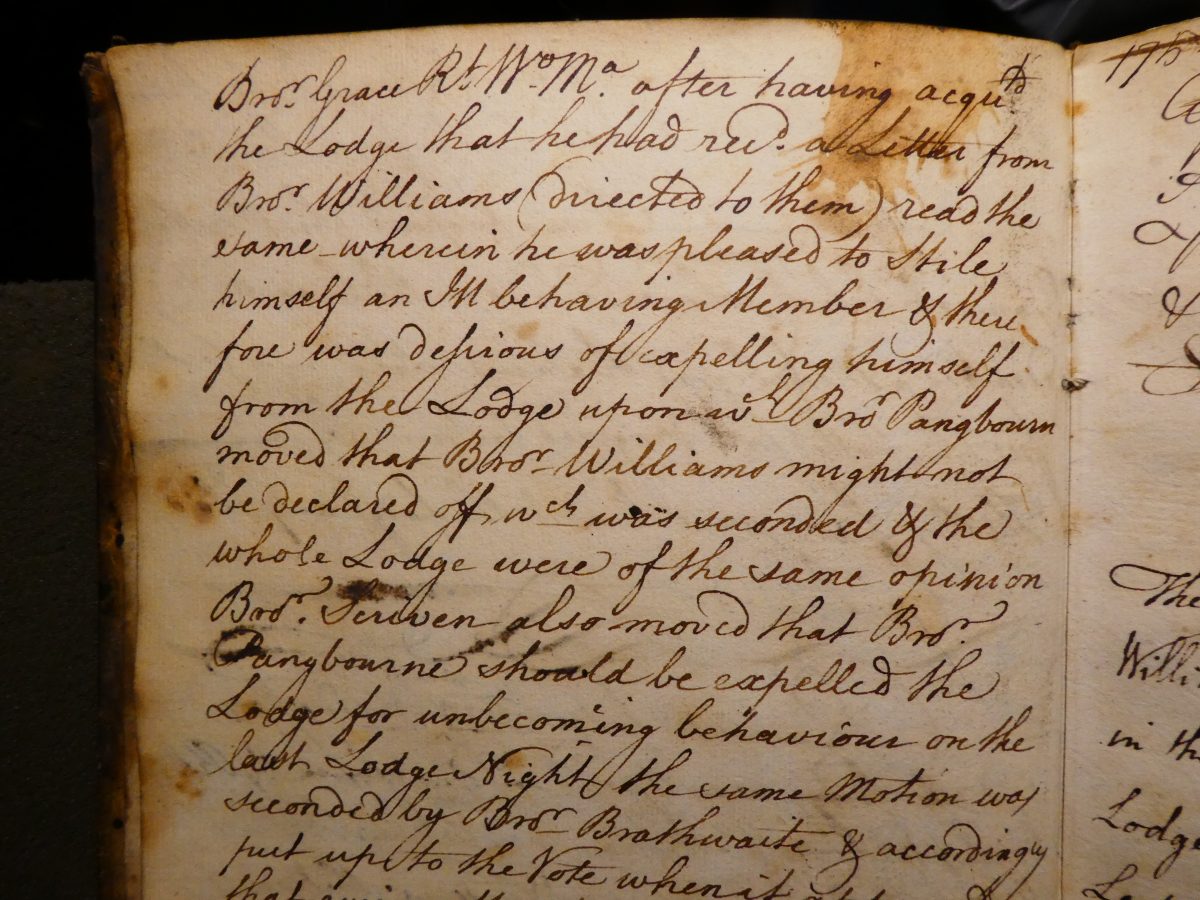 Bror. Grace Rt. Wo. Ma. after having acqutd
the Lodge that he had recd. a Letter from
Bror. Williams (directed to them) read the
same wherein he was pleased to Stile
himself an Ill behaving Member & there
fore was desirous of expelling himself
from the Lodge upon wch Bror Pangbourn
moved that Bror. Williams might not
be declared off wch was seconded & the
whole Lodge were of the same opinion
Bror. Scriven also moved that Bror.
Pangbourne should be expelled the
Lodge for unbecoming behaviour on the
last Lodge Night the same Motion was
seconded by Bror. Brathwaite & accordingly
put up to the Vote when it
that
17th
&
The
Willi
in th
Lodge